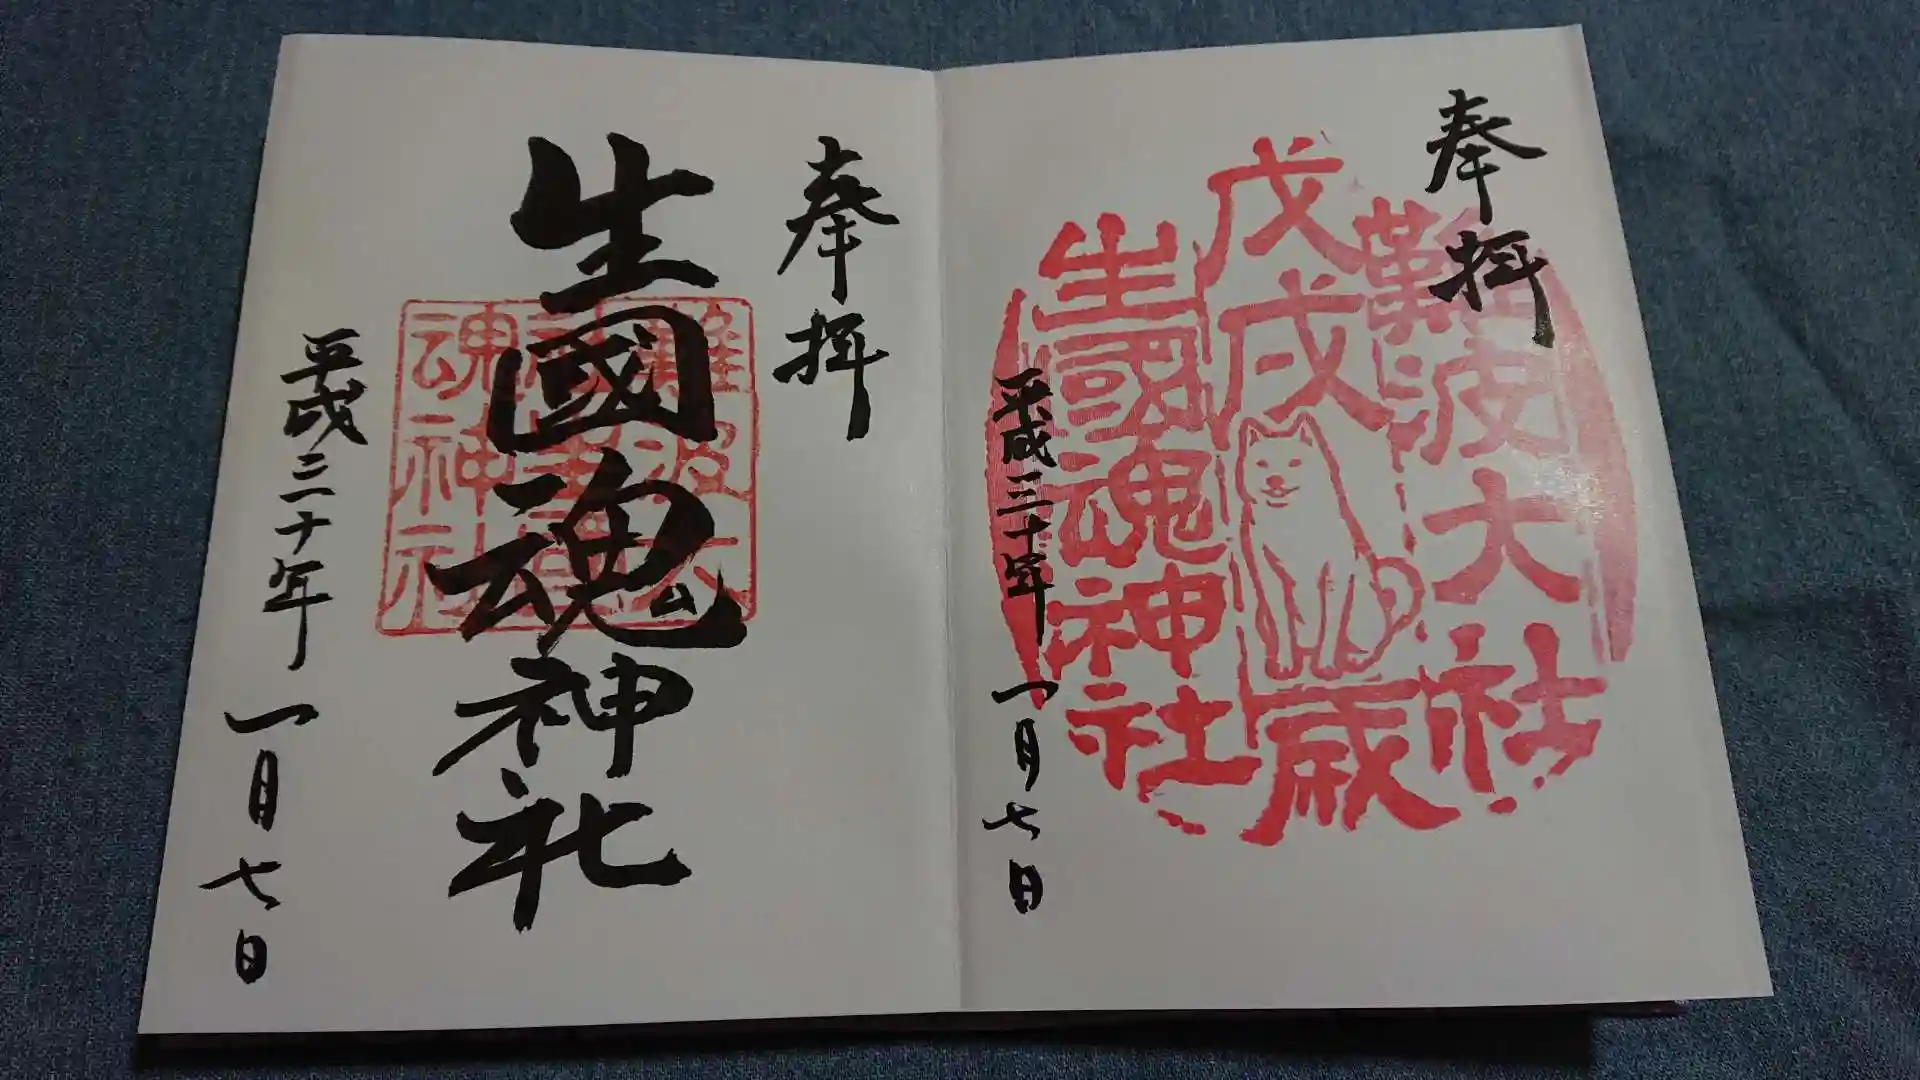 奉拝
難波大社
戊戌歳
生國魂神社
平成三十年一月七日
奉拝
生國魂神社
魂神社
平成三十年一月七日